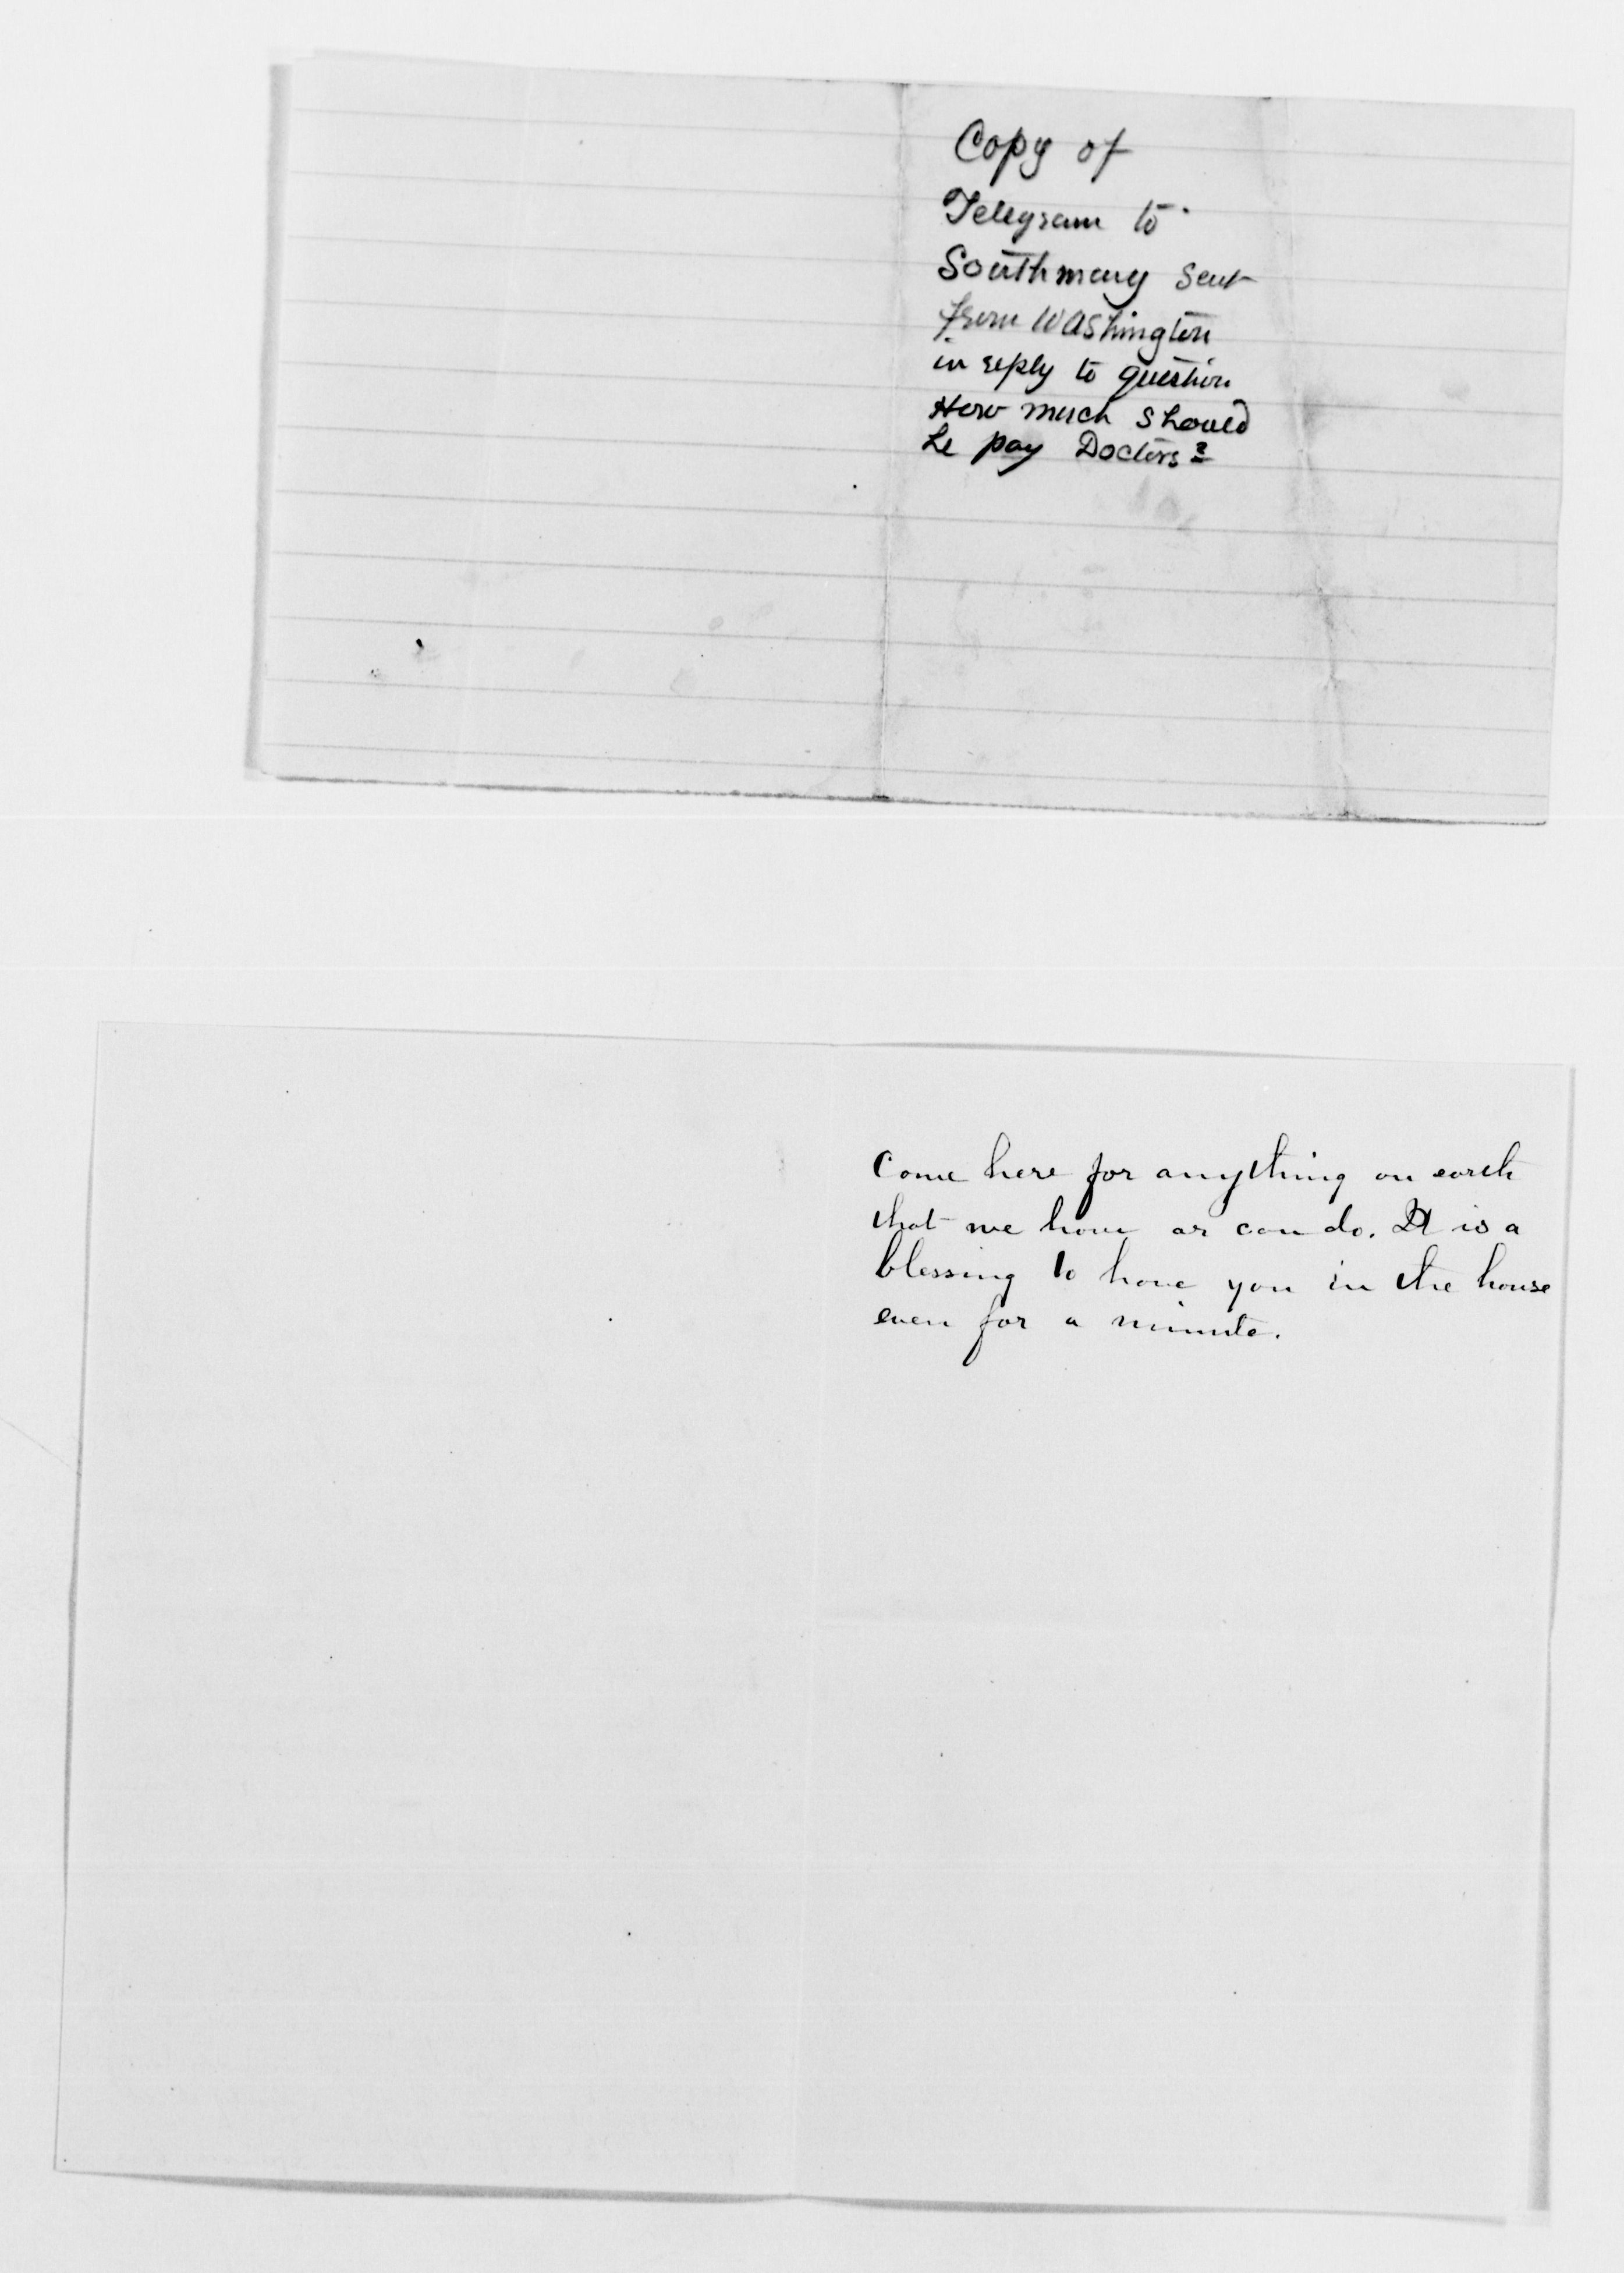 Copy of
Telegram to
Southmayg sent
from Washington
in reply to question
How much should
he pay Doctors?
Come here for anything on earth
that we have or can do. It is a
blessing to have you in the house
even for a minute.